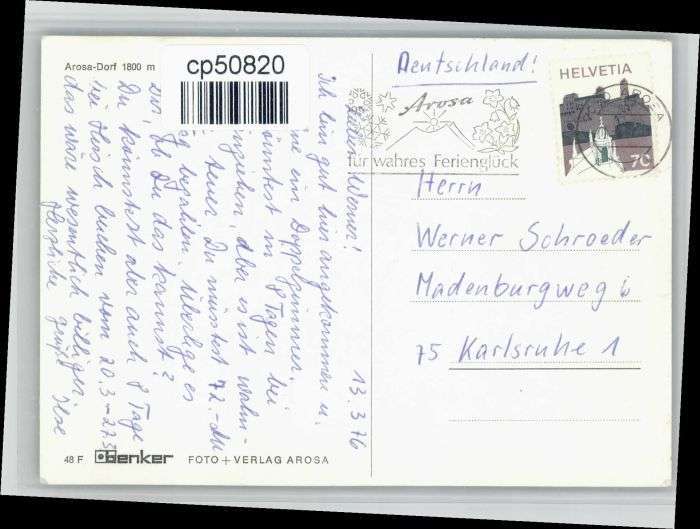 Arosa-Dorf 1800 m
cp50820
13.3.76
Lieber Werner!
Ich bin gut hier angekommen u.
ein Doppelzimmer.
könntest in 8 Tagen bei
einziehen, aber es ist wahn-
teuer. Du müsstest 72.- DM
bezahlen. Überlege es
Dir, ob Du das kannst?
Du könntest aber auch 8 Tage
bei Hersch buchen vom 20.3-27.3
das wäre wesentlich billiger.
Herzliche Grüße Ilse
48 F
Denker FOTO + VERLAG AROSA
Deutschland!
HELVETIA
70
AROSA
Arosa
für wahres Ferienglück
Herrn
Werner Schroeder
Madenburgweg 6
75 Karlsruhe 1